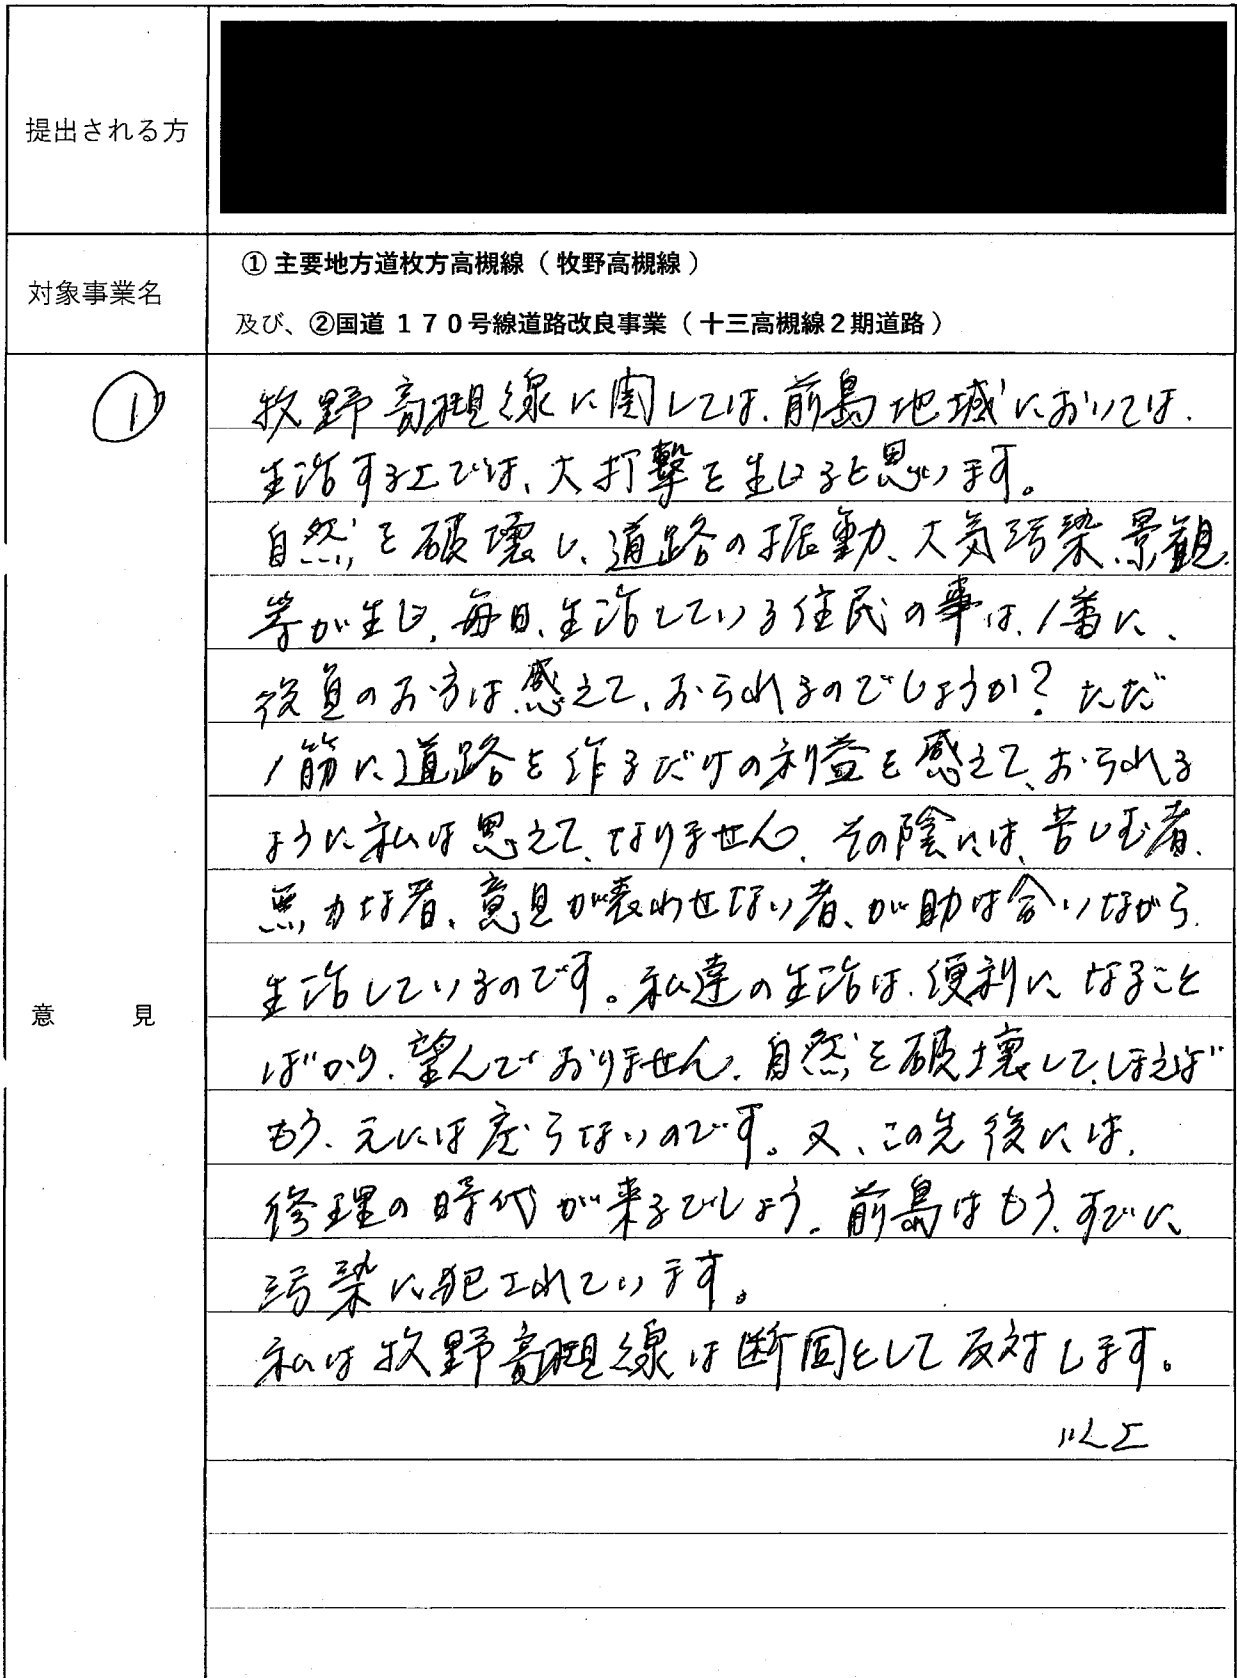 提出される方
対象事業名
① 主要地方道枚方高槻線（牧野高槻線）
及び、②国道１７０号線道路改良事業（十三高槻線２期道路）
①
意　見
牧野高槻線に関しては、前島地域においては、
生活する上では、大打撃を生じると思います。
自然を破壊し、道路の振動、大気汚染、景観、
等が生じ、毎日、生活している住民の事は、1番に、
役員のお方は感えて、おられるのでしょうか？ただ
1筋に道路を作るだけの利益を感えて、おられる
ように私は思えて、なりません。その陰には、苦しむ者、
無力な者、意見が表わせない者、が助け合いながら、
生活しているのです。私達の生活は、便利に、なること
ばかり、望んでおりません。自然を破壊して、しまえば
もう、元には戻らないのです。又、この先後には、
修理の時代が来るでしょう。前島はもう、すでに、
汚染に犯されています。
私は牧野高槻線は断固として反対します。
以上